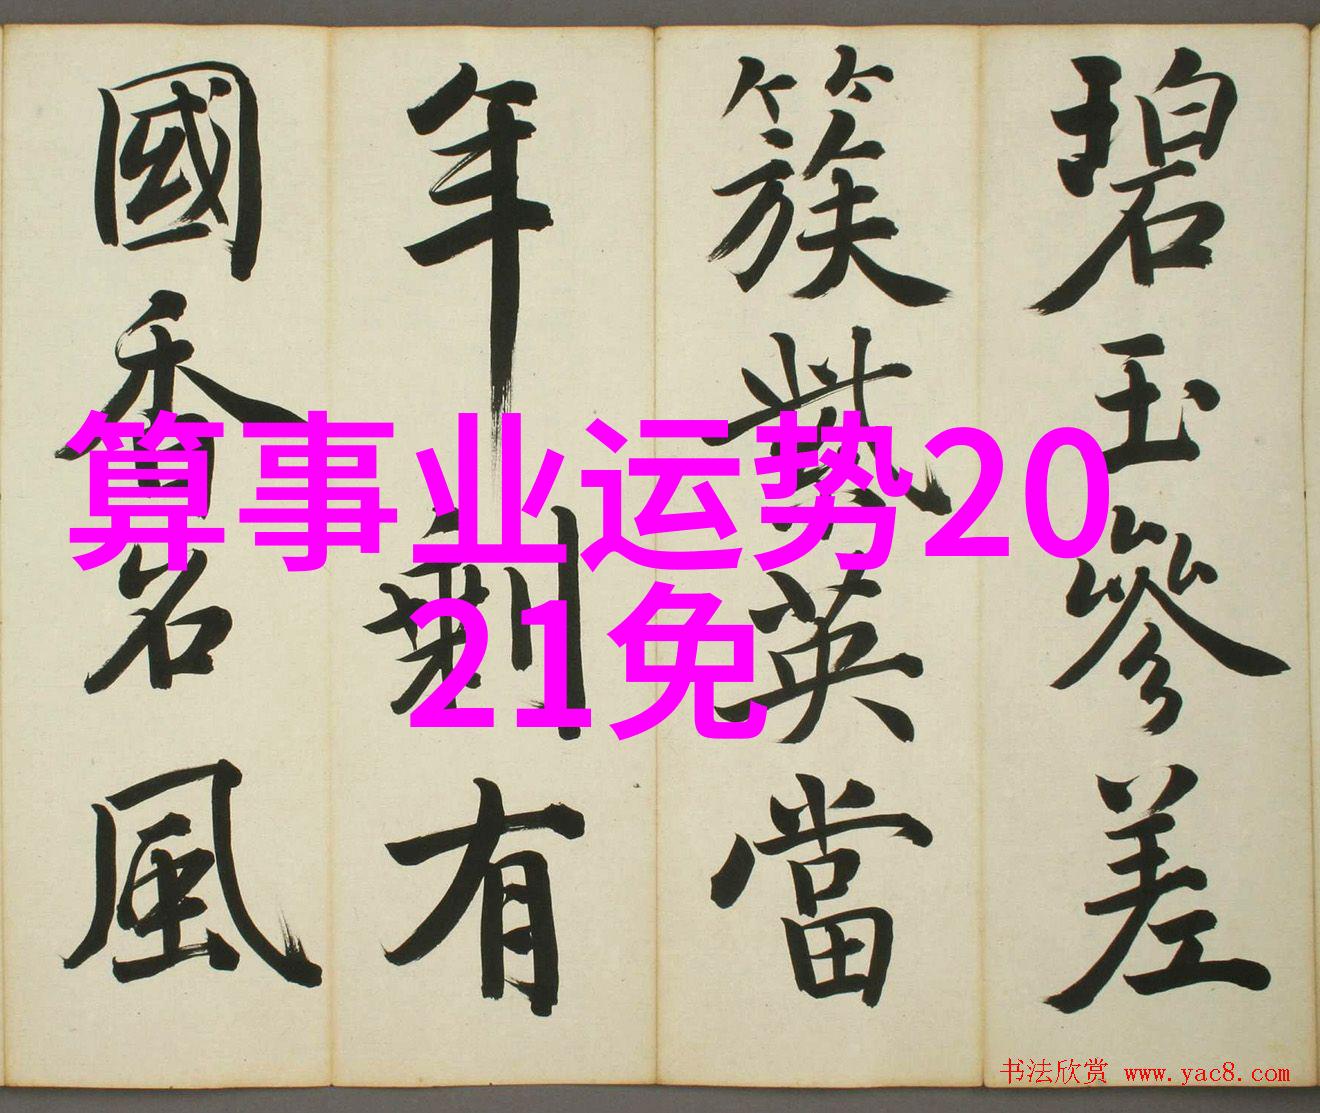 碧玉參差
簇紫英當
年剩有
國香名風
算事业运势20
21免
书法欣赏 www.yac8.com